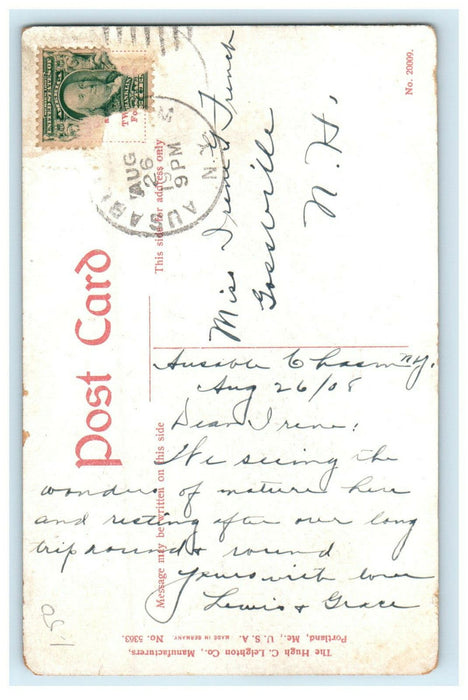 No. 20009.
UNITED STATES OF
AMERICA
AUSABLE
N.Y.
AUG
26
9 PM
This side for address only
Post Card
Miss Irene G French
Gossville
N. H.
Message may be written on this side
Ausable Chasm N.Y.
Aug 26/08
Dear Irene:
We seeing the
wonders of nature here
and resting after our long
trip round & round
Yours with love
Lewis & Grace
1.50
The Hugh C. Leighton Co., Manufacturers,
Portland, Me., U. S. A. MADE IN GERMANY. No. 5363.